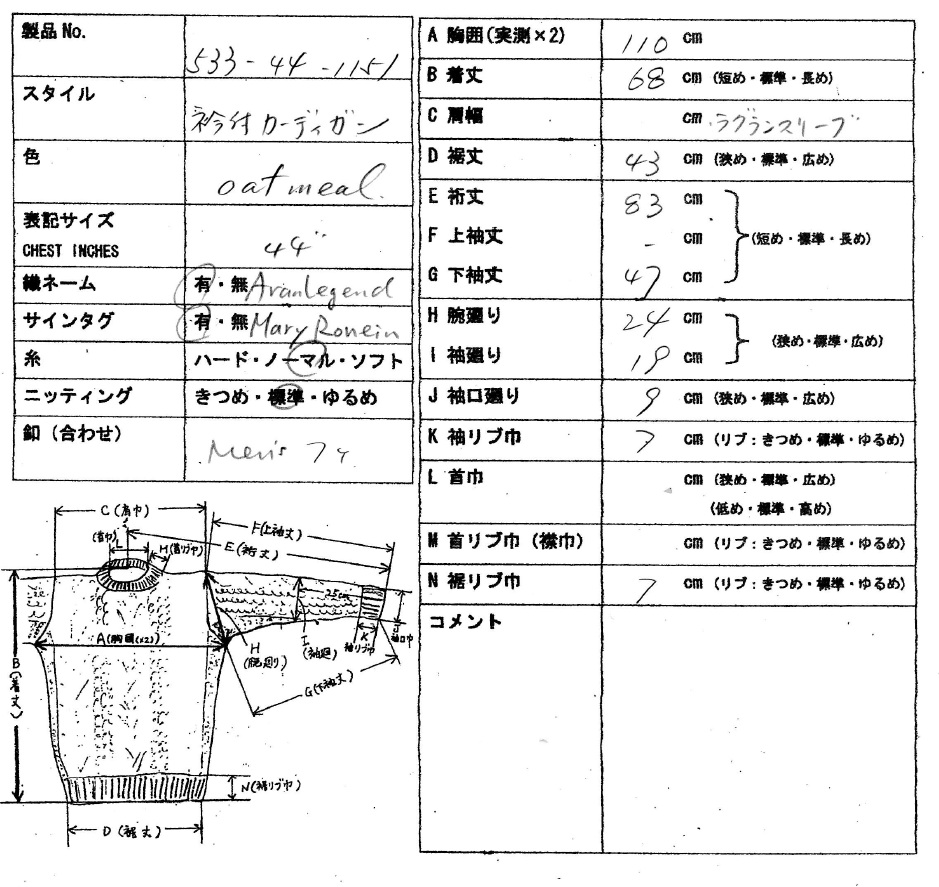 製品 No.
533-44-1151
スタイル
衿付カーディガン
色
oatmeal.
表記サイズ
CHEST INCHES
44"
織ネーム
有・無 AranLegend
サインタグ
有・無 Mary Ronein
糸
ハード・ノーマル・ソフト
ニッティング
きつめ・標準・ゆるめ
釦（合わせ）
Men's 7ヶ
A 胸囲(実測×2)
110 cm
B 着丈
68 cm (短め・標準・長め)
C 肩幅
cm ラグランスリーブ
D 裾丈
43 cm (狭め・標準・広め)
E 裄丈
83 cm
F 上袖丈
- cm
(短め・標準・長め)
G 下袖丈
47 cm
H 腕廻り
24 cm
(狭め・標準・広め)
I 袖廻り
19 cm
J 袖口廻り
9 cm (狭め・標準・広め)
K 袖リブ巾
7 cm (リブ：きつめ・標準・ゆるめ)
L 首巾
cm (狭め・標準・広め)
(低め・標準・高め)
M 首リブ巾（襟巾）
cm (リブ：きつめ・標準・ゆるめ)
N 裾リブ巾
7 cm (リブ：きつめ・標準・ゆるめ)
コメント
C(肩巾)
F(上袖丈)
E(裄丈)
(首巾)
L
M(首リブ巾)
25cm
A(胸囲(×2))
B(着丈)
H
(腕廻り)
I
(袖廻)
K
袖リブ巾
J
袖口巾
G(下袖丈)
N(裾リブ巾)
D(裾丈)